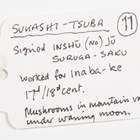 SUKASHI-TSUBA
11
Signed INSHŪ (NO) JŪ
SURUGA-SAKU
worked for Inaba-ke
17th/18th cent.
Mushrooms in mountain va
under waning moon.